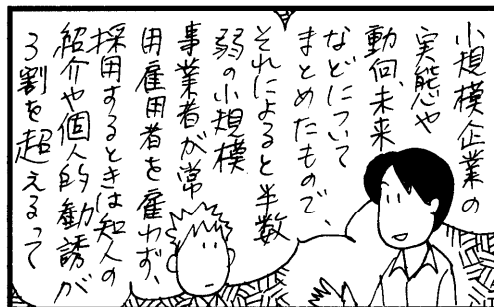 小規模企業の
実態や
動向、未来
などについて
まとめたもので、
それによると半数
弱の小規模
事業者が常
用雇用者を雇わず、
採用するときは知人の
紹介や個人的勧誘が
3割を超えるって